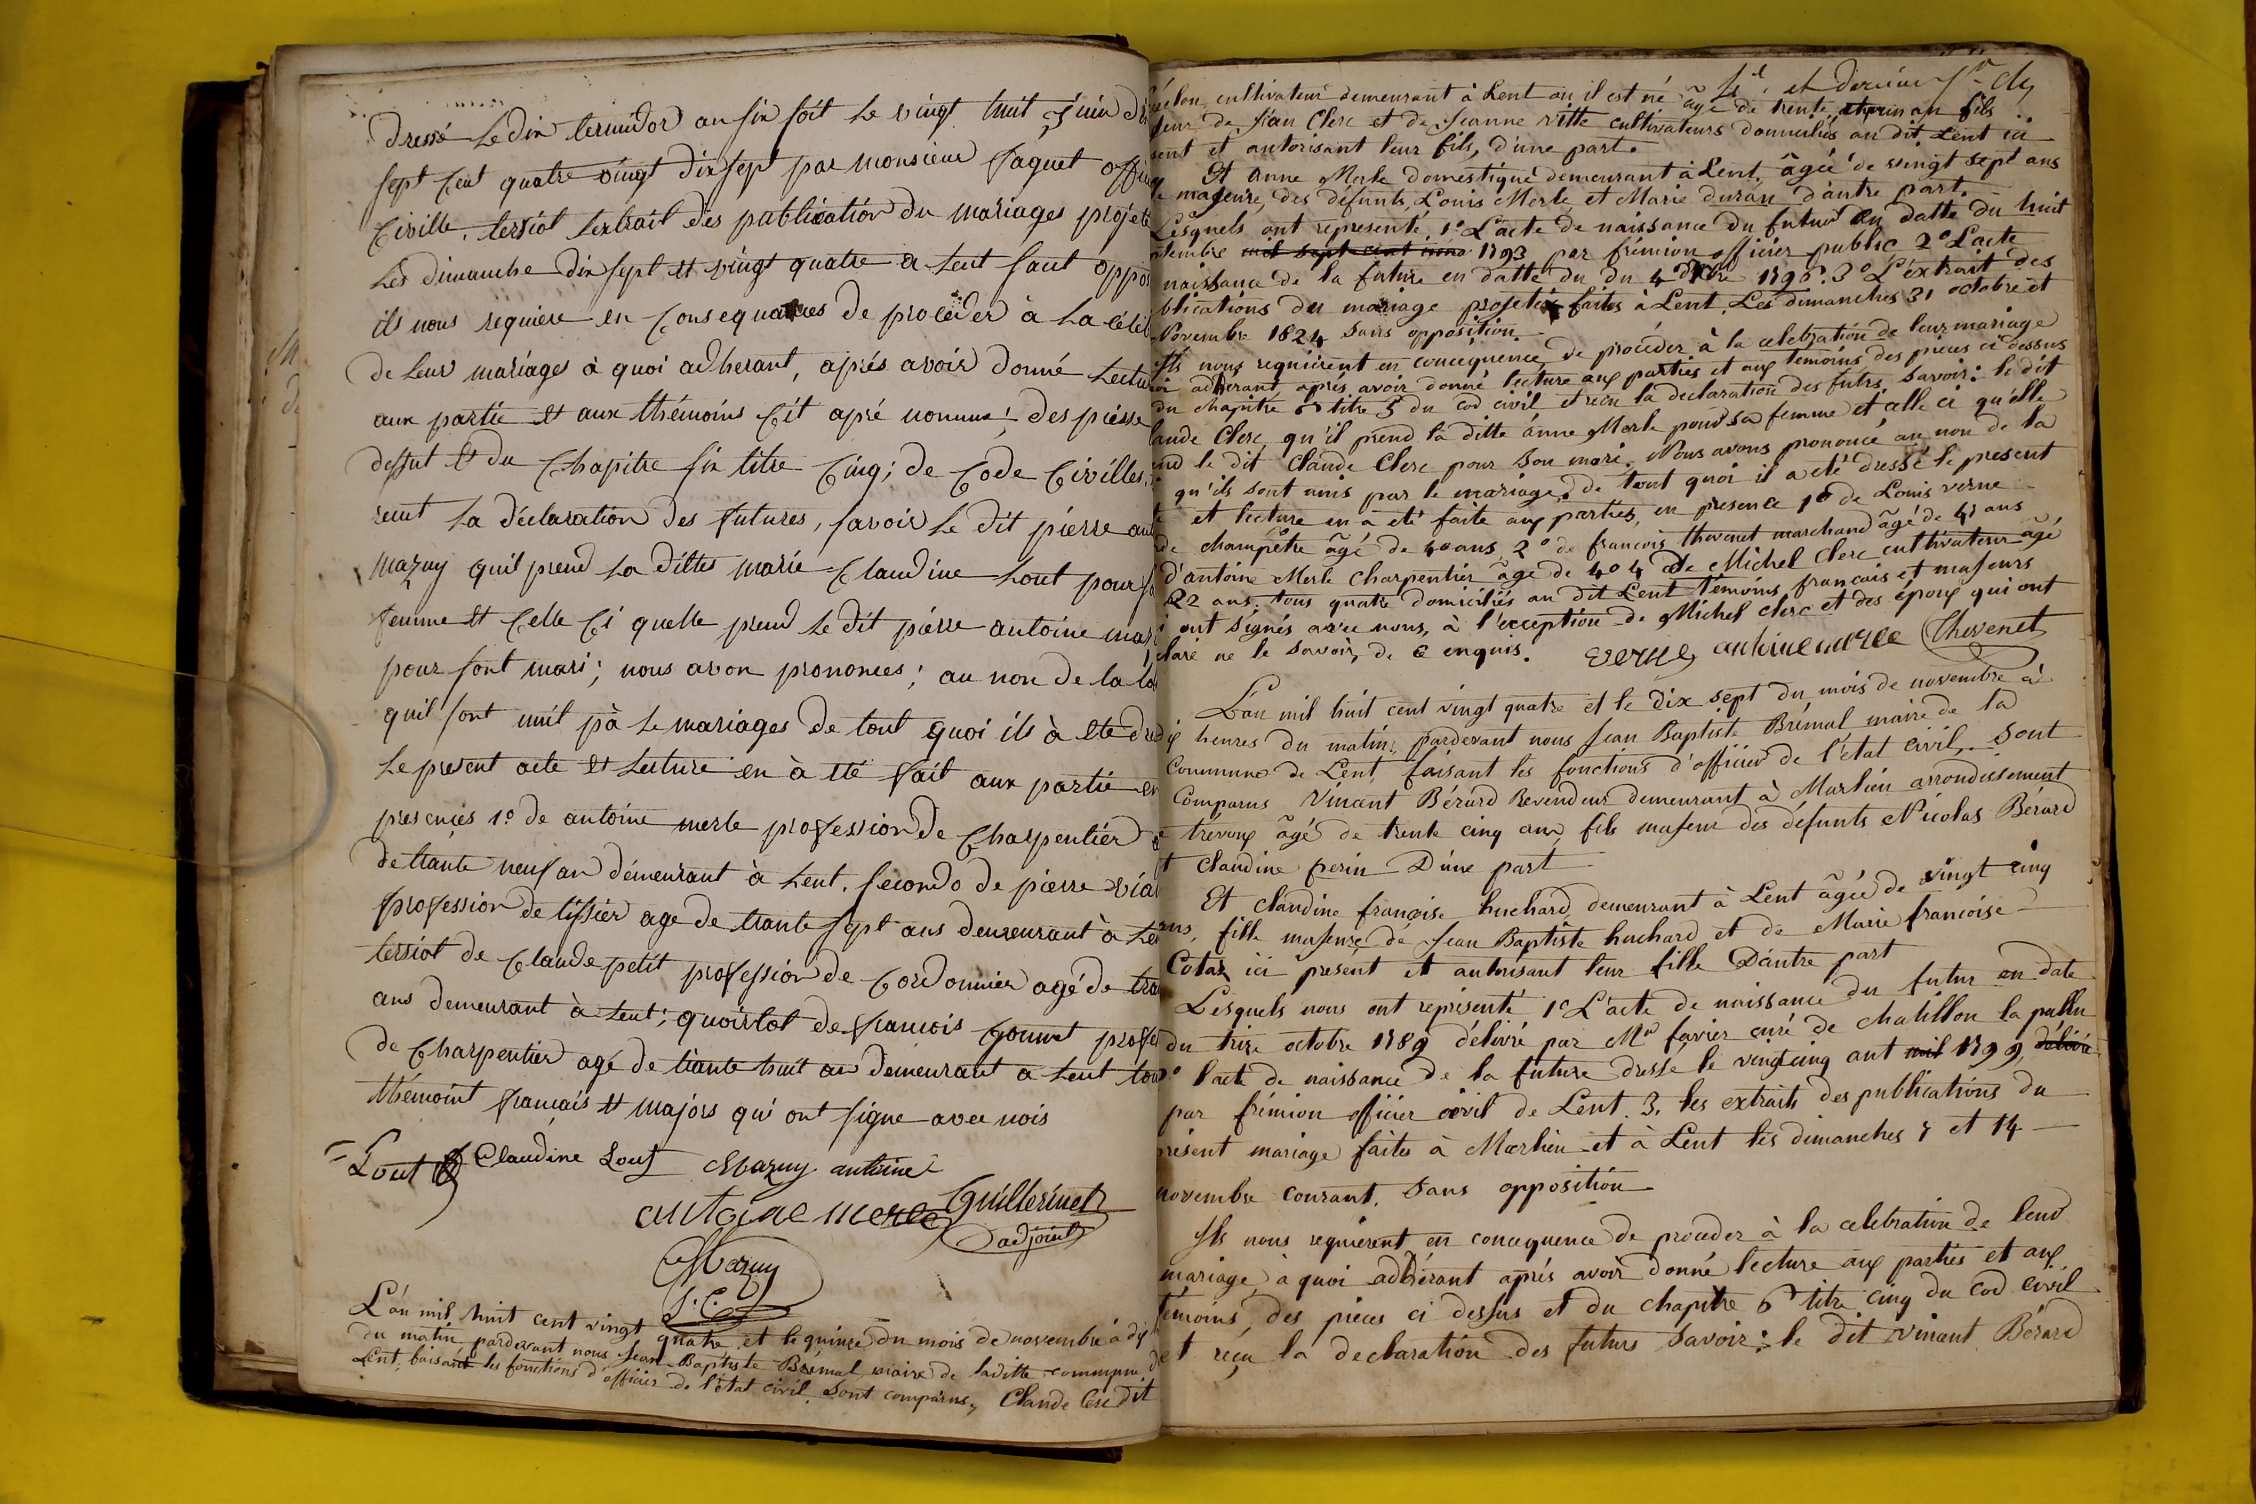 dressé le dix termidor an six soit le vingt huit juin
sept cent quatre vingt dix sept par monsieur faguet
Civille. tersiot lextrait des publication du mariages projet
Les dimanche dix sept et vingt quatre a Lent sant
ils nous requiere en Consequances de procéder à La
de Leur mariages à quoi adherant, aprés avoir donné
aux partie et aux thémoins Cit apré nommé; des piesse
dessut et du Chapitre six titre Cinq; de Code Civilles
reçut La déclaration des futures, savoir le dit pierre
mazuy quil prend La dittes marie Claudine Lout pour
femme et Celle Ci quelle prend Le dit pierre antoine
pour sont mari; nous avon prononces; au non de la
quil sont unit pà Le mariages de tout quoi ils à eté
Le present acte et Lecture en à eté fait aux partie
presences 1° de antoine merle profession de Charpentiér
de trante neuf an démeurant à Lent. secondo de pierre
profession de tissier age de trante sept ans demeurant à
tersiot de Claude petit profession de Cordonnier agé de
ans demeurant à Lent; quoirtot de francois gonnet
de Charpentier agé de trante huit an demeurant a Lent
thémoint francais et majors qui ont signe avec nois
Lout Claudine Lout Mazuy antoine
antoine merle Guillerinet
adjoint
Mazuy
L'an mil huit cent vingt quatre et le quinze du mois de novembre à
du matin pardevant nous Jean Baptiste Brémal maire de laditte commune
Lent, faisant les fonctions d'officier de l'état civil. Sont comparus, Claude Clerc dit
cultivateur demeurant à Lent ou il est né âgé de trente et un an fils
de Jean Clerc et de Jeanne vitte cultivateurs domiciliés au dit Lent ici
et autorisant leur fils, d'une part.
Et Anne Merle domestique demeurant à Lent, âgée de vingt sept ans
majeure, des défunts, Louis Merle et Marie duran d'autre part.
Lesquels ont representé, 1° L'acte de naissance du futur en datte du huit
mil sept cent 1793 par frémion officier public 2° L'acte
naissance de la future en datte du du 4 3° L'éxtrait des
du mariage projetté faites à Lent, Les dimanches 31 octobre et
Novembre 1824 sans opposition.
Ils nous requiérent en concequence, de procéder à la celebration de leur mariage
adhérant aprés avoir donné lecture aux parties et aux temoins des pieces ci dessus
du chapitre 6 titre 5 du cod civil et reçu la declaration des futrs savoir: le dit
Clerc, qu'il prend la ditte anne Merle pour sa femme et celle ci qu'elle
le dit Claude Clerc pour son mari. Nous avons prononcé au non de la
qu'ils sont unis par le mariage, de tout quoi il a eté dressé le present
et lecture en à eté faite aux parties, en presence 1° de Louis verne
champêtre âgé de 40 ans, 2° de francois thevenet marchand âgé de 41 ans
d'antoine Merle charpentier âgé de 40 4 de Michel Clerc cultivateur âgé
22 ans; tous quatre domiciliés au dit Lent témoins francais et majeurs
ont signés avec nous, à l'exception de Michel clerc et des époux qui ont
ne le savoir, de ce enquis. verne antoine merle Thevenet
L'an mil huit cent vingt quatre et le dix sept du mois de novembre à
heures du matin; pardevant nous Jean Baptiste Brémal maire de la
Commune de Lent, faisant les fonctions d'officier de l'état civil. Sont
Comparus Vincent Bérard Revendeur demeurant à Marlieu arrondissement
trévoux âgé de trente cinq ans, fils majeur des défunts Nicolas Bérard
Claudine perin D'une part
Et claudine françoise huchard demeurant à Lent âgée de vingt cinq
fille majeure de Jean Baptiste huchard et de Marie francoise
Cotat ici présent et autorisant leur fille D'autre part
Lesquels nous ont représenté 1° L'acte de naissance du futur en date
du trize octobre 1789 délivré par Mr favier curé de chatillon la pallu
l'acte de naissance de la future dressé le vingt cinq aut mil 1799, délivré
par frémion officier civil de Lent. 3. les extraits des publications du
mariage faites à Marlieu et à Lent les dimanches 7 et 14
novembre courant. Sans opposition
Ils nous requiérent en concequence de proceder à la celebration de leur
mariage à quoi adhérant aprés avoir donné lecture aux parties et aux
témoins, des pieces ci dessus et du chapitre 6 titre cinq du cod civil
et reçu la declaration des futurs savoir: le dit vincent Bérard